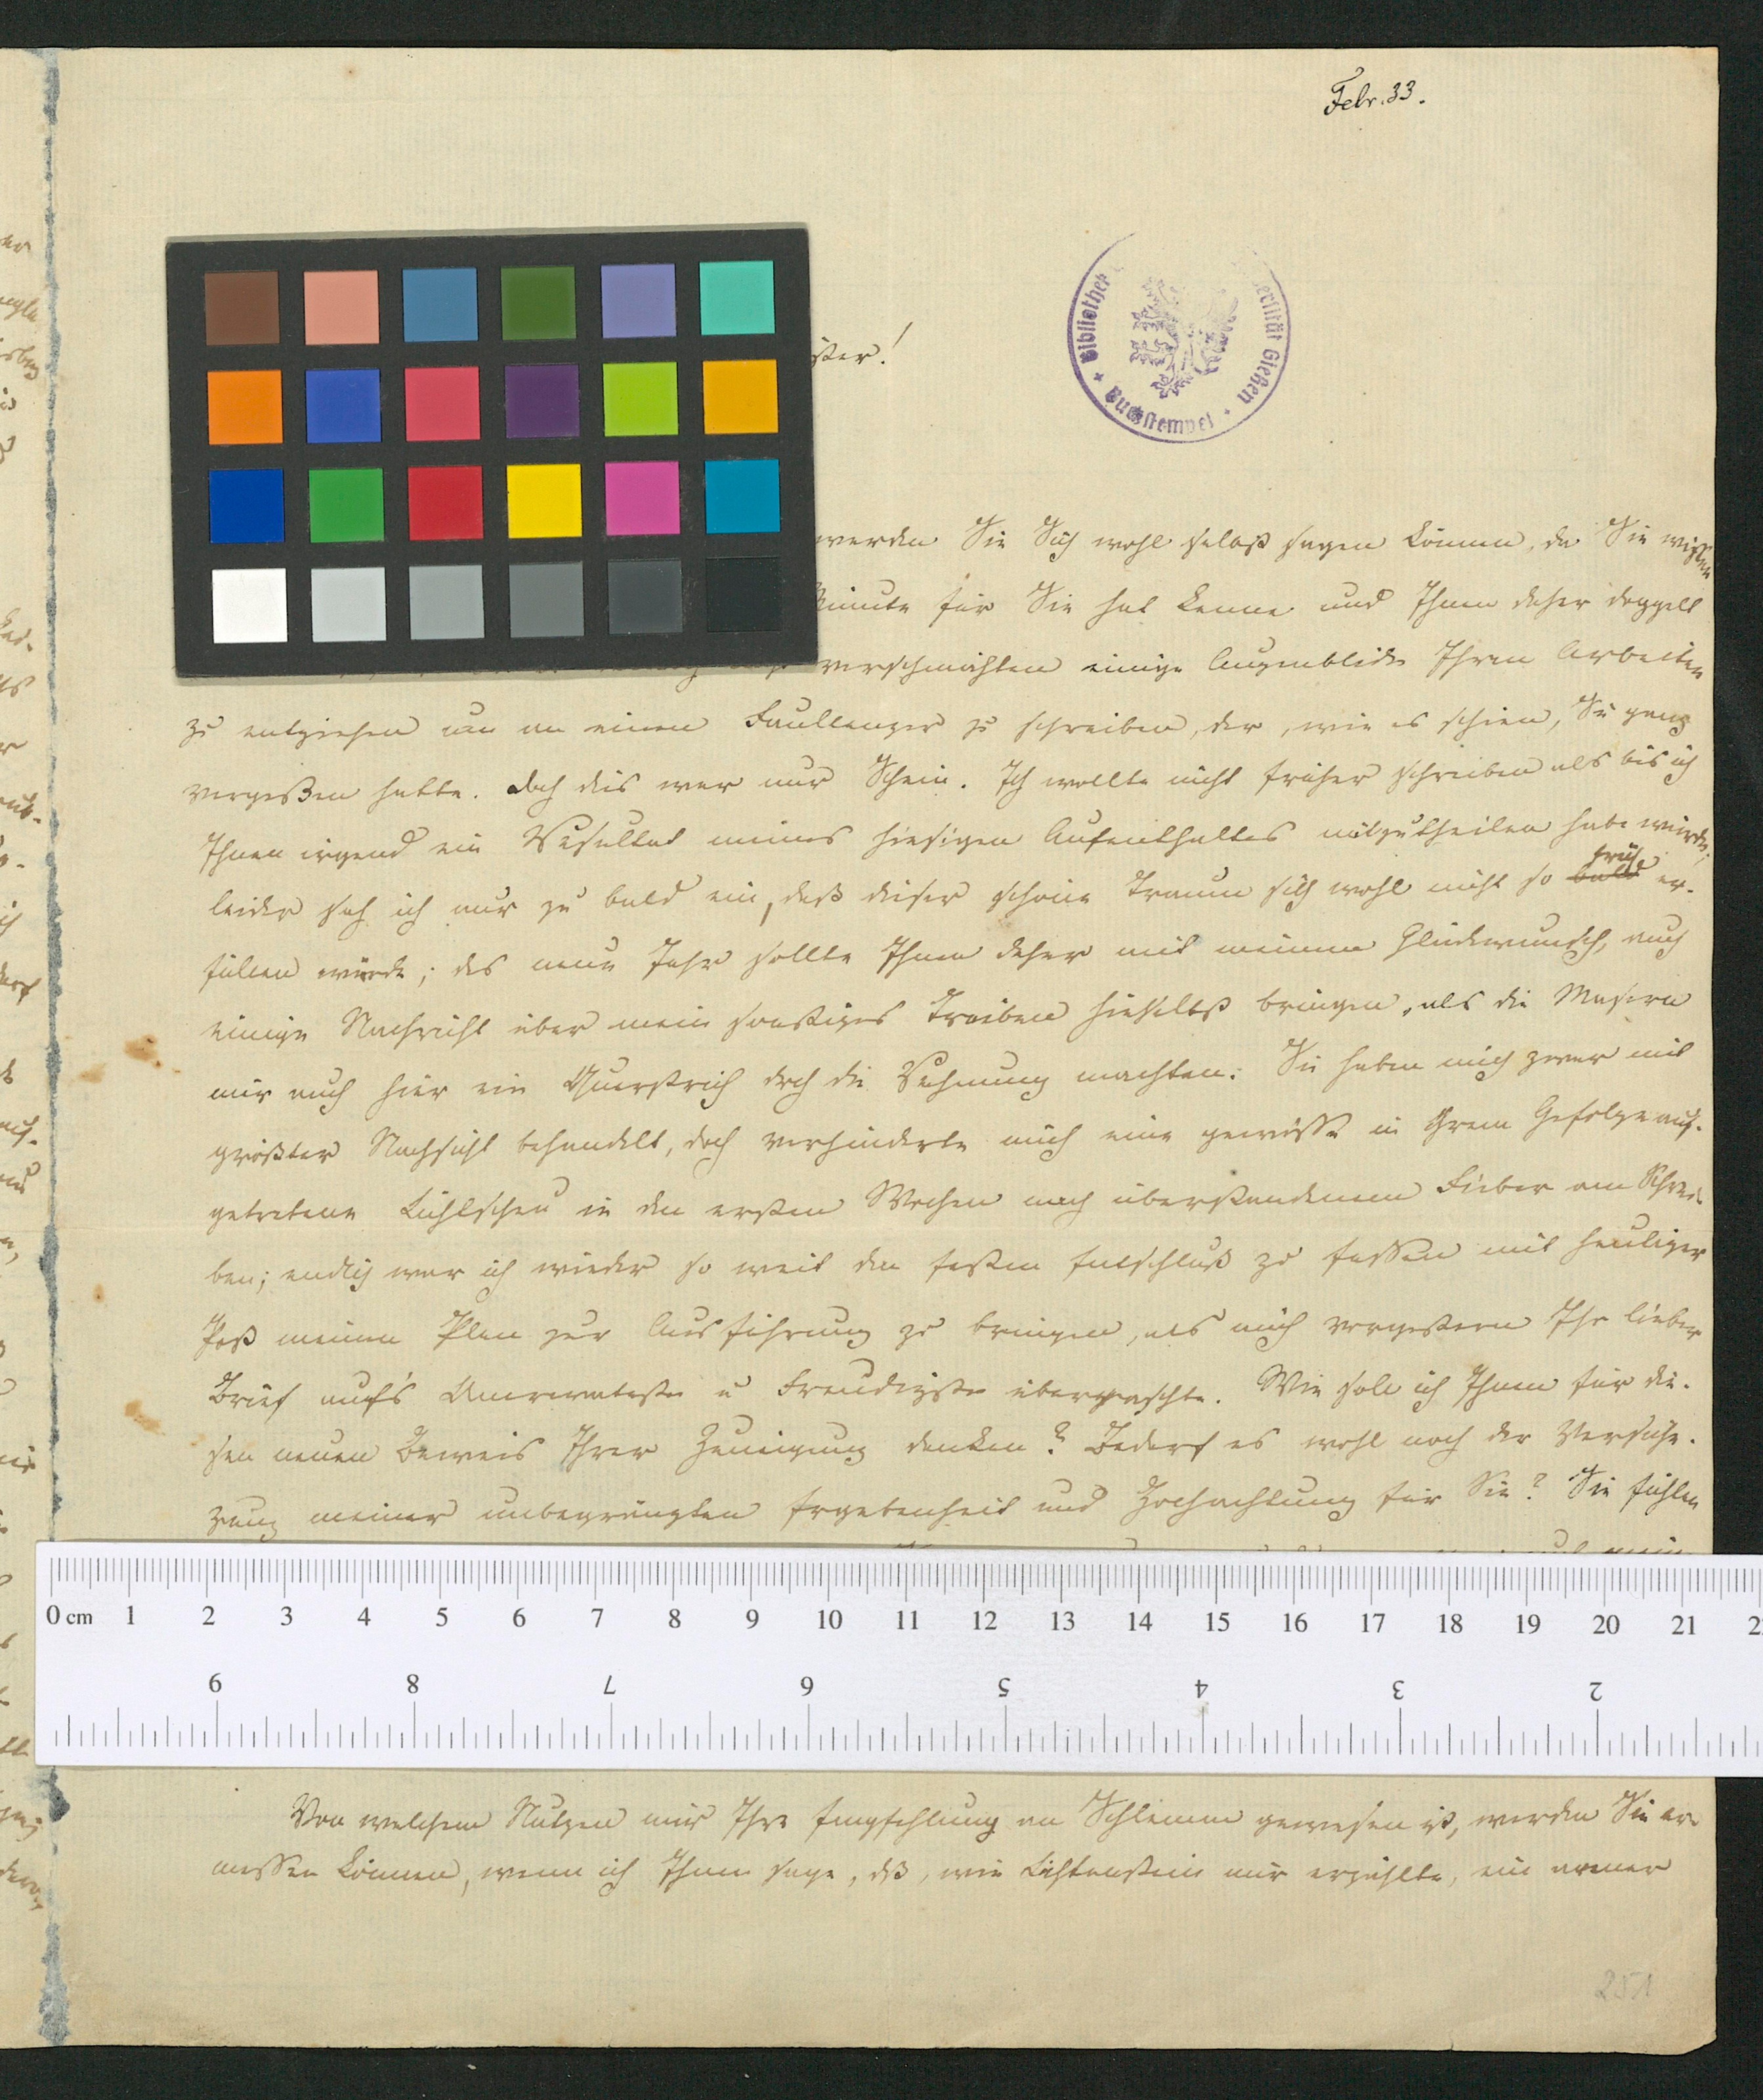 Febr. 33.
ster!
Bibliothek
ersität Gießen
Buchstempel
werden Sie Sich wohl selbst sagen können, da Sie wissen
Minute für Sie hat kenne und Ihnen daher doppelt
verschmähten einige Augenblicke Ihren Arbeiten
zu entziehen um an einen Faullenzer zu schreiben, der, wie es schien, Sie ganz
vergeßen hatte. Doch dies war nur Schein. Ich wollte nicht früher schreiben als bis ich
Ihnen irgend ein Resultat meines hiesigen Aufenthaltes mitzutheilen habe würde;
leider sah ich nur zu bald ein, daß dieser schöne Traum sich wohl nicht so bald früh er-
füllen würde; das neue Jahr sollte Ihnen daher mit meinem Glückwunsch, auch
einige Nachricht über mein sonstiges Treiben hieselbst bringen, als die Masern
mir auch hier ein Querstrich dch die Rechnung machten: Sie haben mich zwar mit
größter Nachsicht behandelt, doch verhinderte mich eine gewisse in ihrem Gefolge auf-
getretene Lichtscheu in den ersten Wochen nach überstandenem Fieber am Schrei-
ben; endlich war ich wieder so weit den festen Entschluß zu fassen mit heutiger
Post meinen Plan zur Ausführung zu bringen, als mich vorgestern Ihr lieber
Brief auf's Unerwarteste u Freudigste überraschte. Wie soll ich Ihnen für die-
sen neuen Beweis Ihrer Zuneigung danken? Bedarf es wohl noch der Versiche-
rung meiner unbegränzten Ergebenheit und Hochachtung für Sie? Sie fühlen
0 cm 1 2 3 4 5 6 7 8 9 10 11 12 13 14 15 16 17 18 19 20 21 2
9 8 7 6 5 4 3 2
Von welchem Nutzen mir Ihre Empfehlung an Schlemm gewesen ist, werden Sie er-
messen können, wenn ich Ihnen sage, dß, wie Lichtenstein mir erzählte, ein armer
251